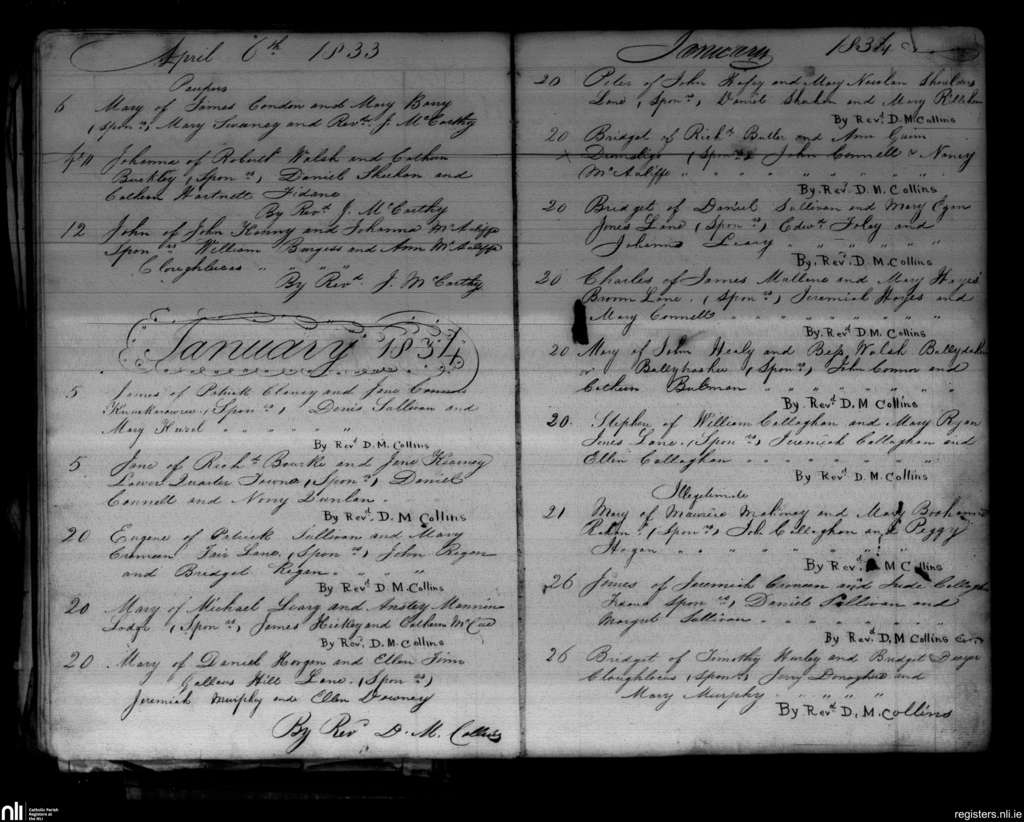 April 6th 1833
Paupers
6 Mary of James Condon and Mary Barry
(Sponrs) Mary Swaney and Revd. J. McCarthy
Johanna of Robert Walsh and Cathen
Buckley (Sponrs) Daniel Sheehan and
Catheen Hartnett Fidane
By Revd J. McCarthy
12 John of John Kenny and Johanna McAuliffe
Sponrs William Burgess and Ann McAuliffe
Cloughleves " " " "
By Revd J. McCarthy
January 1834
5 James of Patrick Clancy and Jane Connors
(Sponrs) Denis Sullivan and
Mary Hazel " " " " "
By Revd D. M. Collins
5 Jane of Richd Bourke and Jane Kearney
Lower Quarter Town (Sponrs) Daniel
Connell and Nory Dunlan.
By Revd. D. M Collins
20 Eugene of Patrick Sullivan and Mary
Cremean Fair Lane, (Sponrs) John Regan
and Bridget Regan. " " "
By Revd D. M. Collins
20 Mary of Michael Leary and Anstey Mannin
Lodge (Sponrs) James Hickey and Cathern McCue
By Revd. D. M. Collins
20 Mary of Daniel Horgan and Ellen Finn
Gallows Hill Lane. (Sponrs)
Jeremiah Murphy and Ellen Downey
By Revd D. M. Collins
January 1834
20 Peter of John Kefey and Mary Nowlan Shoulders
Lane (Sponrs) Daniel Shehan and Mary
By Revd. D. M. Collins
20 Bridget of Richd Butler and Ann Guinn
(Sponrs) John Connell & Nancy
McAuliffe " " " " " "
By. Revd. D. M. Collins
20 Bridget of Daniel Sullivan and Mary Egan
Jones Lane (Sponrs) Edwd Foley and
Johanna Leary " " " "
By. Revd. D. M. Collins
20 Charles of James Mullane and Mary Hayes
Broom Lane. (Sponrs) Jeremiah Hayes and
Mary Connell " " " " "
By. Revd D. M. Collins
20 Mary of John Healy and Bess Walsh
or (Sponrs) John Connor and
Catheen Bateman " " " " "
By. Revd. D. M Collins
20. Stephen of William Callaghan and Mary Ryan
Jones Lane. (Sponrs) Jeremiah Callaghan and
Ellen Callaghan " " " " "
By. Revd D. M. Collins
Illegitimate
21 Mary of Maurice and Mary
(Sponrs) Joh Callaghan and Peggy
Hogan " " " " "
By Revd D M Collins
26 James of Jeremiah Cronan and Jude
(Sponrs) Daniel Sullivan and
Margret Sullivan " " " " "
By Revd. D. M Collins
26 Bridget of Timothy Hurley and Bridget Dwyer
Cloughleves (Sponrs) Jerry Donaghue and
Mary Murphy " " " "
By Revd D. M. Collins
nli Catholic Parish Registers at the NLI
registers.nli.ie